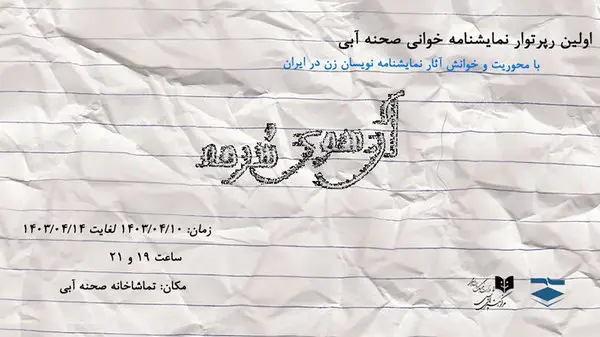 اولین رپرتوار نمایشنامه خوانی صحنه آبی
با محوریت و خوانش آثار نمایشنامه نویسان زن در ایران
آن سوی نُدبه
زمان: ۱۴۰۳/۰۴/۱۰ لغایت ۱۴۰۳/۰۴/۱۴
ساعت ۱۹ و ۲۱
مکان: تماشاخانه صحنه آبی